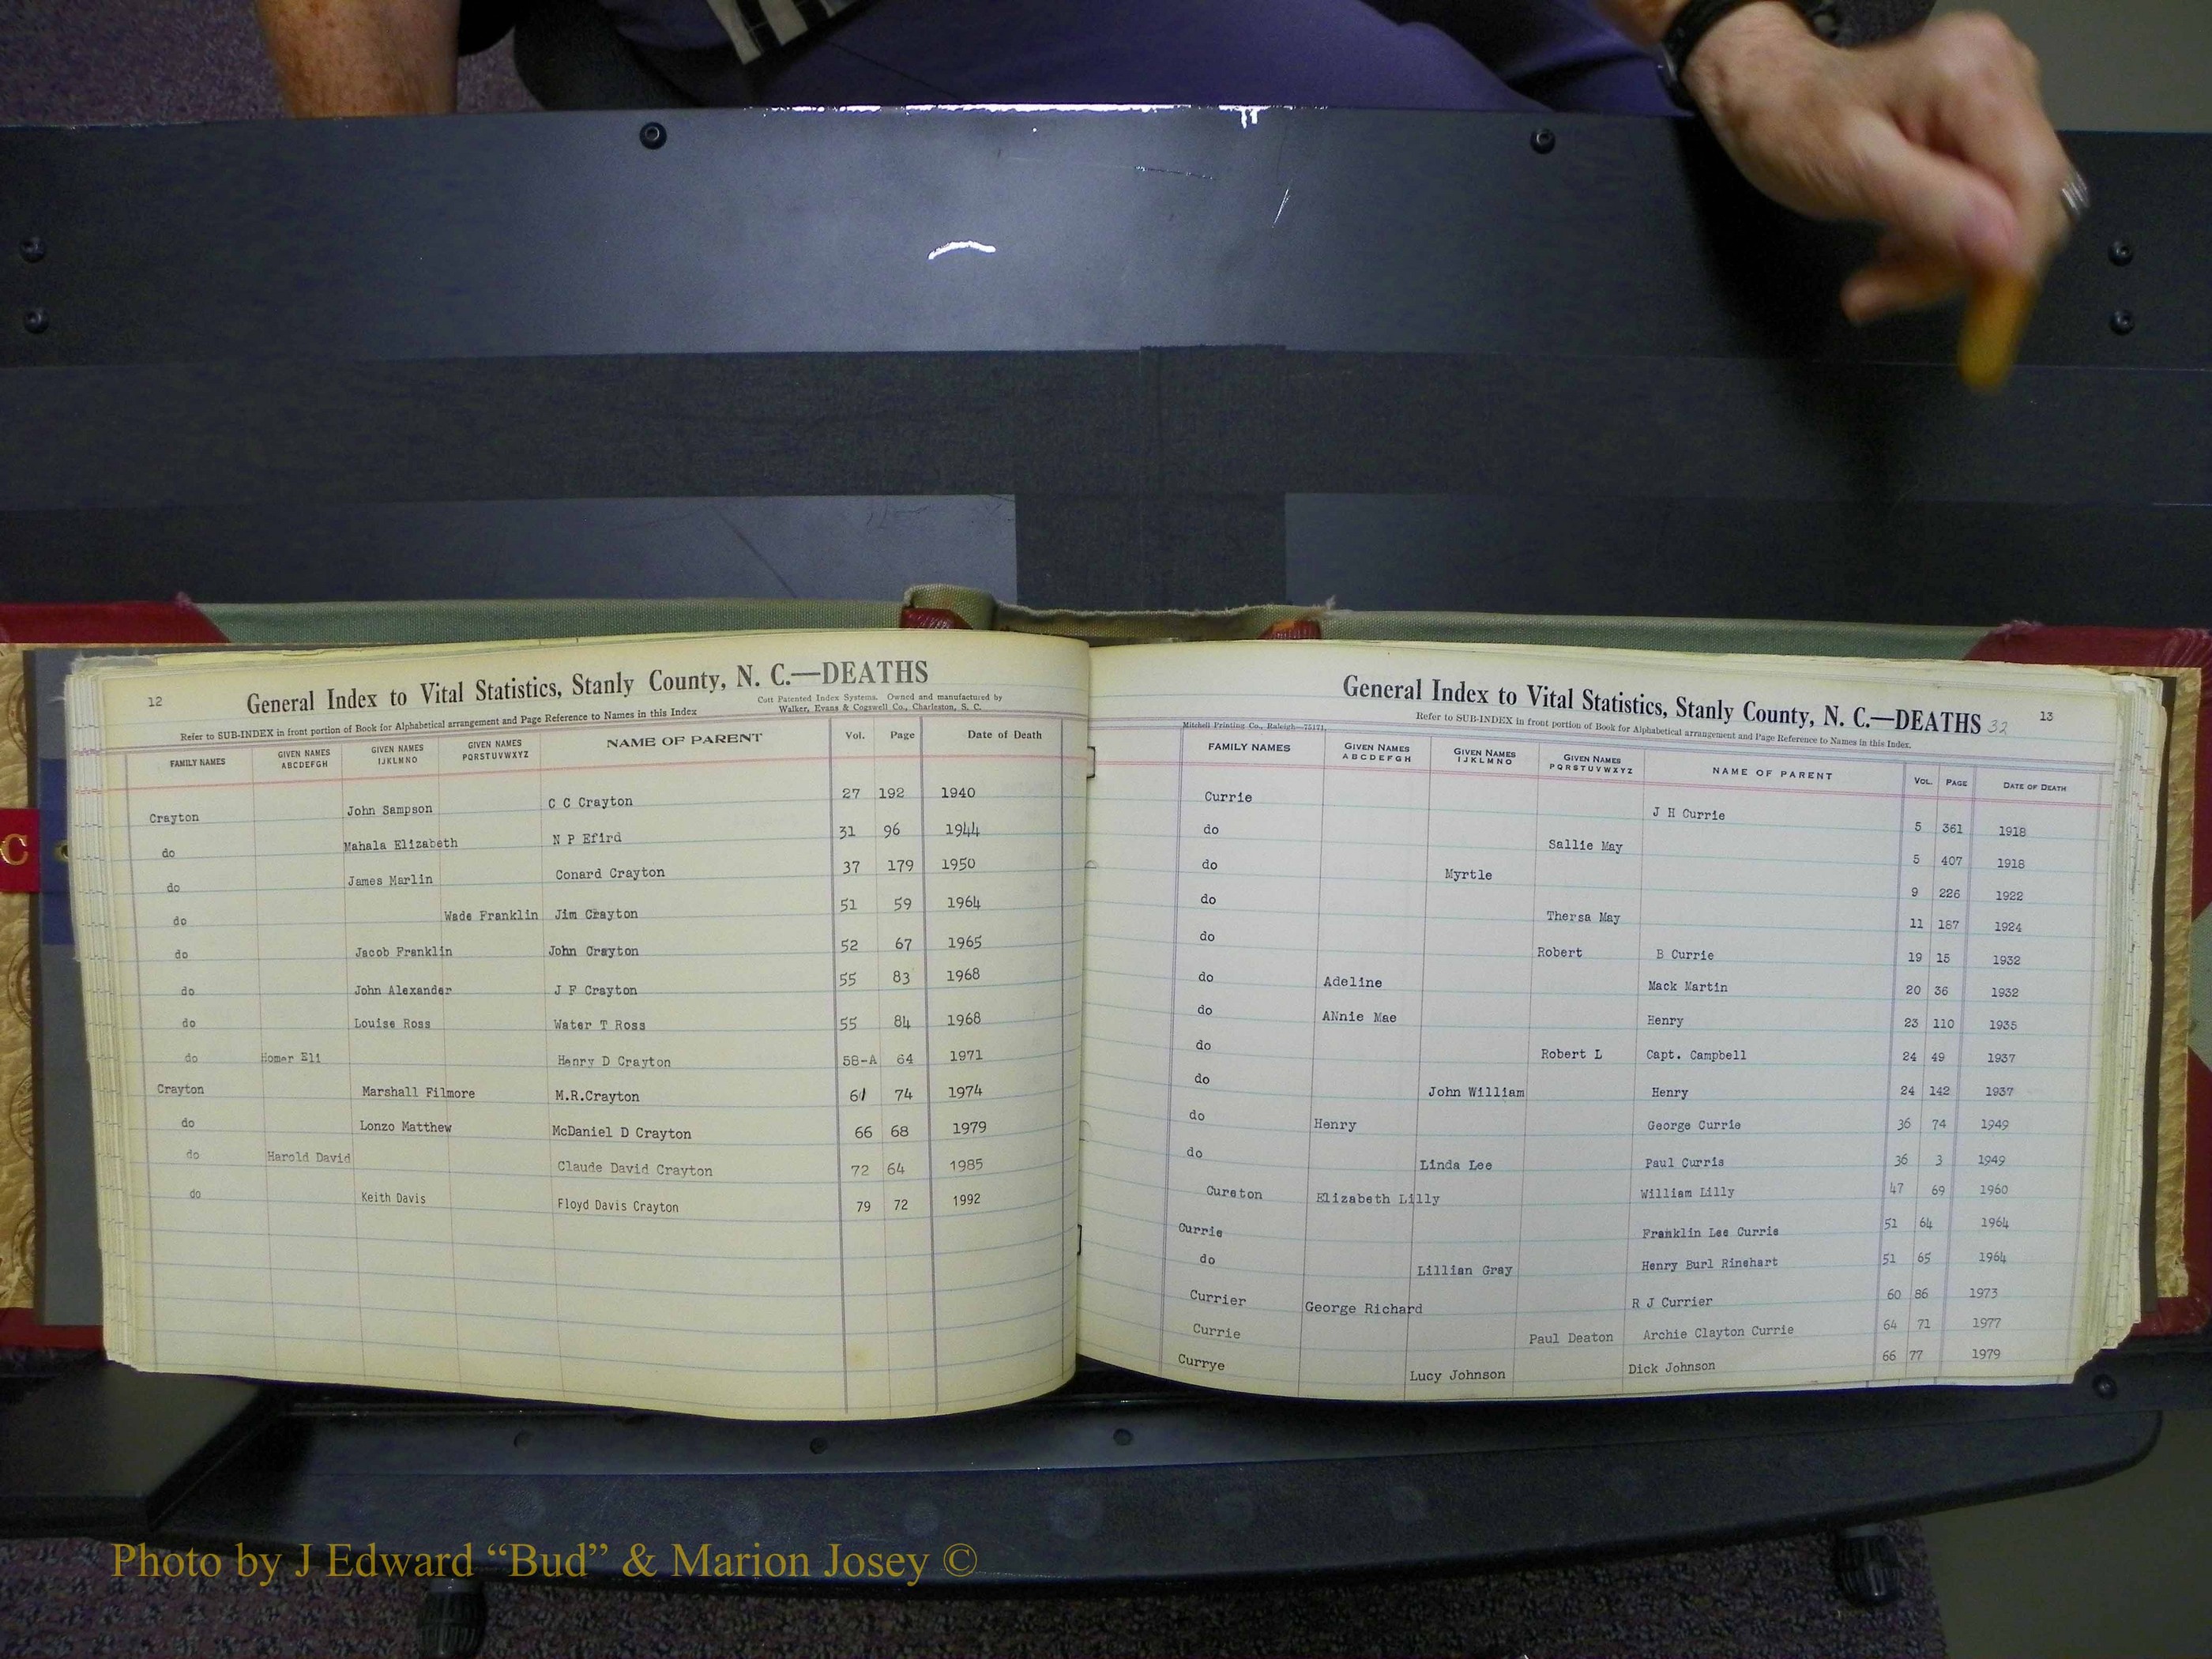 12
General Index to Vital Statistics, Stanly County, N. C.—DEATHS
Refer to SUB-INDEX in front portion of Book for Alphabetical arrangement and Page Reference to Names in this Index
Cott Patented Index Systems. Owned and manufactured by
Walker, Evans & Cogswell Co., Charleston, S. C.
FAMILY NAMES GIVEN NAMES ABCDEFGH GIVEN NAMES IJKLMNO GIVEN NAMES PQRSTUVWXYZ NAME OF PARENT Vol. Page Date of Death
Crayton John Sampson C C Crayton 27 192 1940
do Mahala Elizabeth N P Efird 31 96 1944
do James Marlin Conard Crayton 37 179 1950
do Wade Franklin Jim Crayton 51 59 1964
do Jacob Franklin John Crayton 52 67 1965
do John Alexander J F Crayton 55 83 1968
do Louise Ross Water T Ross 55 84 1968
do Homer Eli Henry D Crayton 58-A 64 1971
Crayton Marshall Filmore M.R.Crayton 61 74 1974
do Lonzo Matthew McDaniel D Crayton 66 68 1979
do Harold David Claude David Crayton 72 64 1985
do Keith Davis Floyd Davis Crayton 79 72 1992
C
General Index to Vital Statistics, Stanly County, N. C.—DEATHS 32
13
Mitchell Printing Co., Raleigh—75171.
Refer to SUB-INDEX in front portion of Book for Alphabetical arrangement and Page Reference to Names in this Index.
FAMILY NAMES GIVEN NAMES ABCDEFGH GIVEN NAMES IJKLMNO GIVEN NAMES PQRSTUVWXYZ NAME OF PARENT VOL. PAGE DATE OF DEATH
Currie J H Currie 5 361 1918
do Sallie May 5 407 1918
do Myrtle 9 226 1922
do Thersa May 11 187 1924
do Robert B Currie 19 15 1932
do Adeline Mack Martin 20 36 1932
do ANnie Mae Henry 23 110 1935
do Robert L Capt. Campbell 24 49 1937
do John William Henry 24 142 1937
do Henry George Currie 36 74 1949
do Linda Lee Paul Curris 36 3 1949
Cureton Elizabeth Lilly William Lilly 47 69 1960
Currie Franklin Lee Currie 51 64 1964
do Lillian Gray Henry Burl Rinehart 51 65 1964
Currier George Richard R J Currier 60 86 1973
Currie Paul Deaton Archie Clayton Currie 64 71 1977
Currye Lucy Johnson Dick Johnson 66 77 1979
Photo by J Edward “Bud” & Marion Josey ©